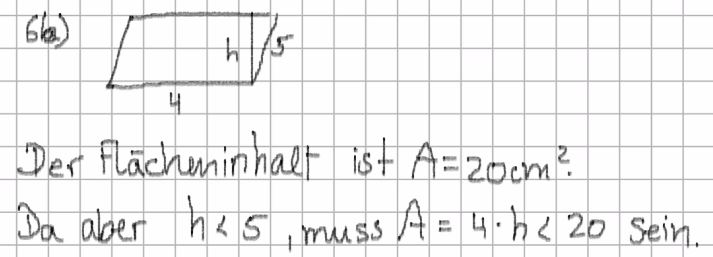 6a)
h
5
4
Der Flächeninhalt ist A = 20cm².
Da aber h < 5, muss A = 4 · h < 20 sein.